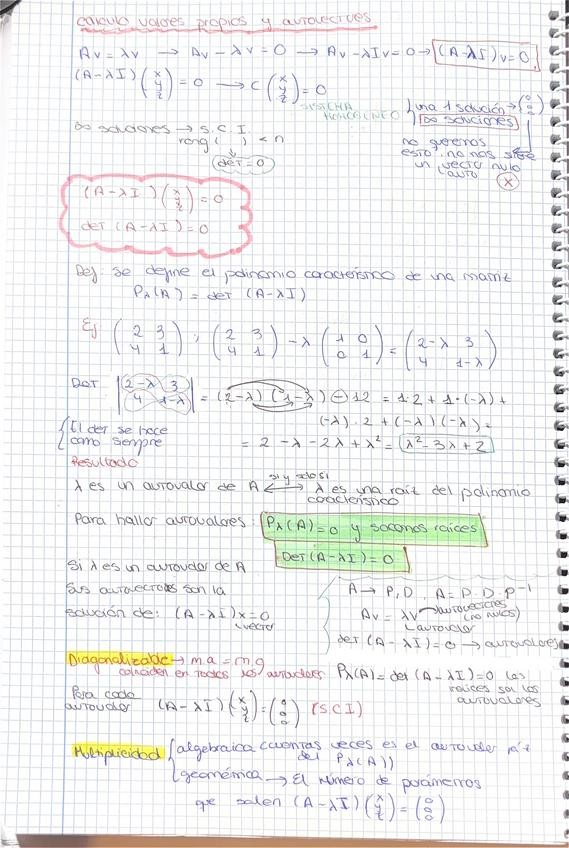 calculo valores propios y autovectores
Av = λv → Av - λv = 0 → Av - λIv = 0 → (A-λI)v = 0
(A-λI)(x y z) = 0 → C(x y z) = 0
SISTEMA HOMOGÉNEO
una 1 solución → (0 0 0)
∞ soluciones
∞ soluciones → S.C.I.
rang ( ) < n
det = 0
no queremos
esto, no nos sirve
un vector nulo
(A-λI)(x y z) = 0
det (A-λI) = 0
Def: Se define el polinomio característico de una matriz
Pλ(A) = det (A-λI)
Ej (2 3 4 1) ; (2 3 4 1) - λ (1 0 0 1) = (2-λ 3 4 1-λ)
Det |2-λ 3 4 1-λ| = (2-λ)(1-λ) - 12 = 1·2 + 1·(-λ) +
(-λ)·2 + (-λ)(-λ)
{El det se hace
como siempre
= 2 - λ - 2λ + λ² = λ² - 3λ + 2
Resultado
λ es un autovalor de A ←si y solo si→ λ es una raíz del polinomio
característico
Para hallar autovalores: Pλ(A) = 0 y sacamos raices
Det(A-λI) = 0
Si λ es un autovalor de A
Sus autovectores son la
solución de: (A-λI)x = 0
vector
A → P, D. A = P·D·P⁻¹
Av = λv autovectores (no nulos)
autovalor
det (A-λI) = 0 → autovalores
Diagonalizable → m.a = m.g
coinciden en todos los autovalores
Pλ(A) = det (A-λI) = 0 las
raices son los
autovalores
Para cada
autovalor (A-λI)(x y z) = (0 0 0) (SCI)
Multiplicidad { algebraica cuantas veces es el autovalor raíz
del Pλ(A))
geométrica → El número de parámetros
que salen (A-λI)(x y z) = (0 0 0)